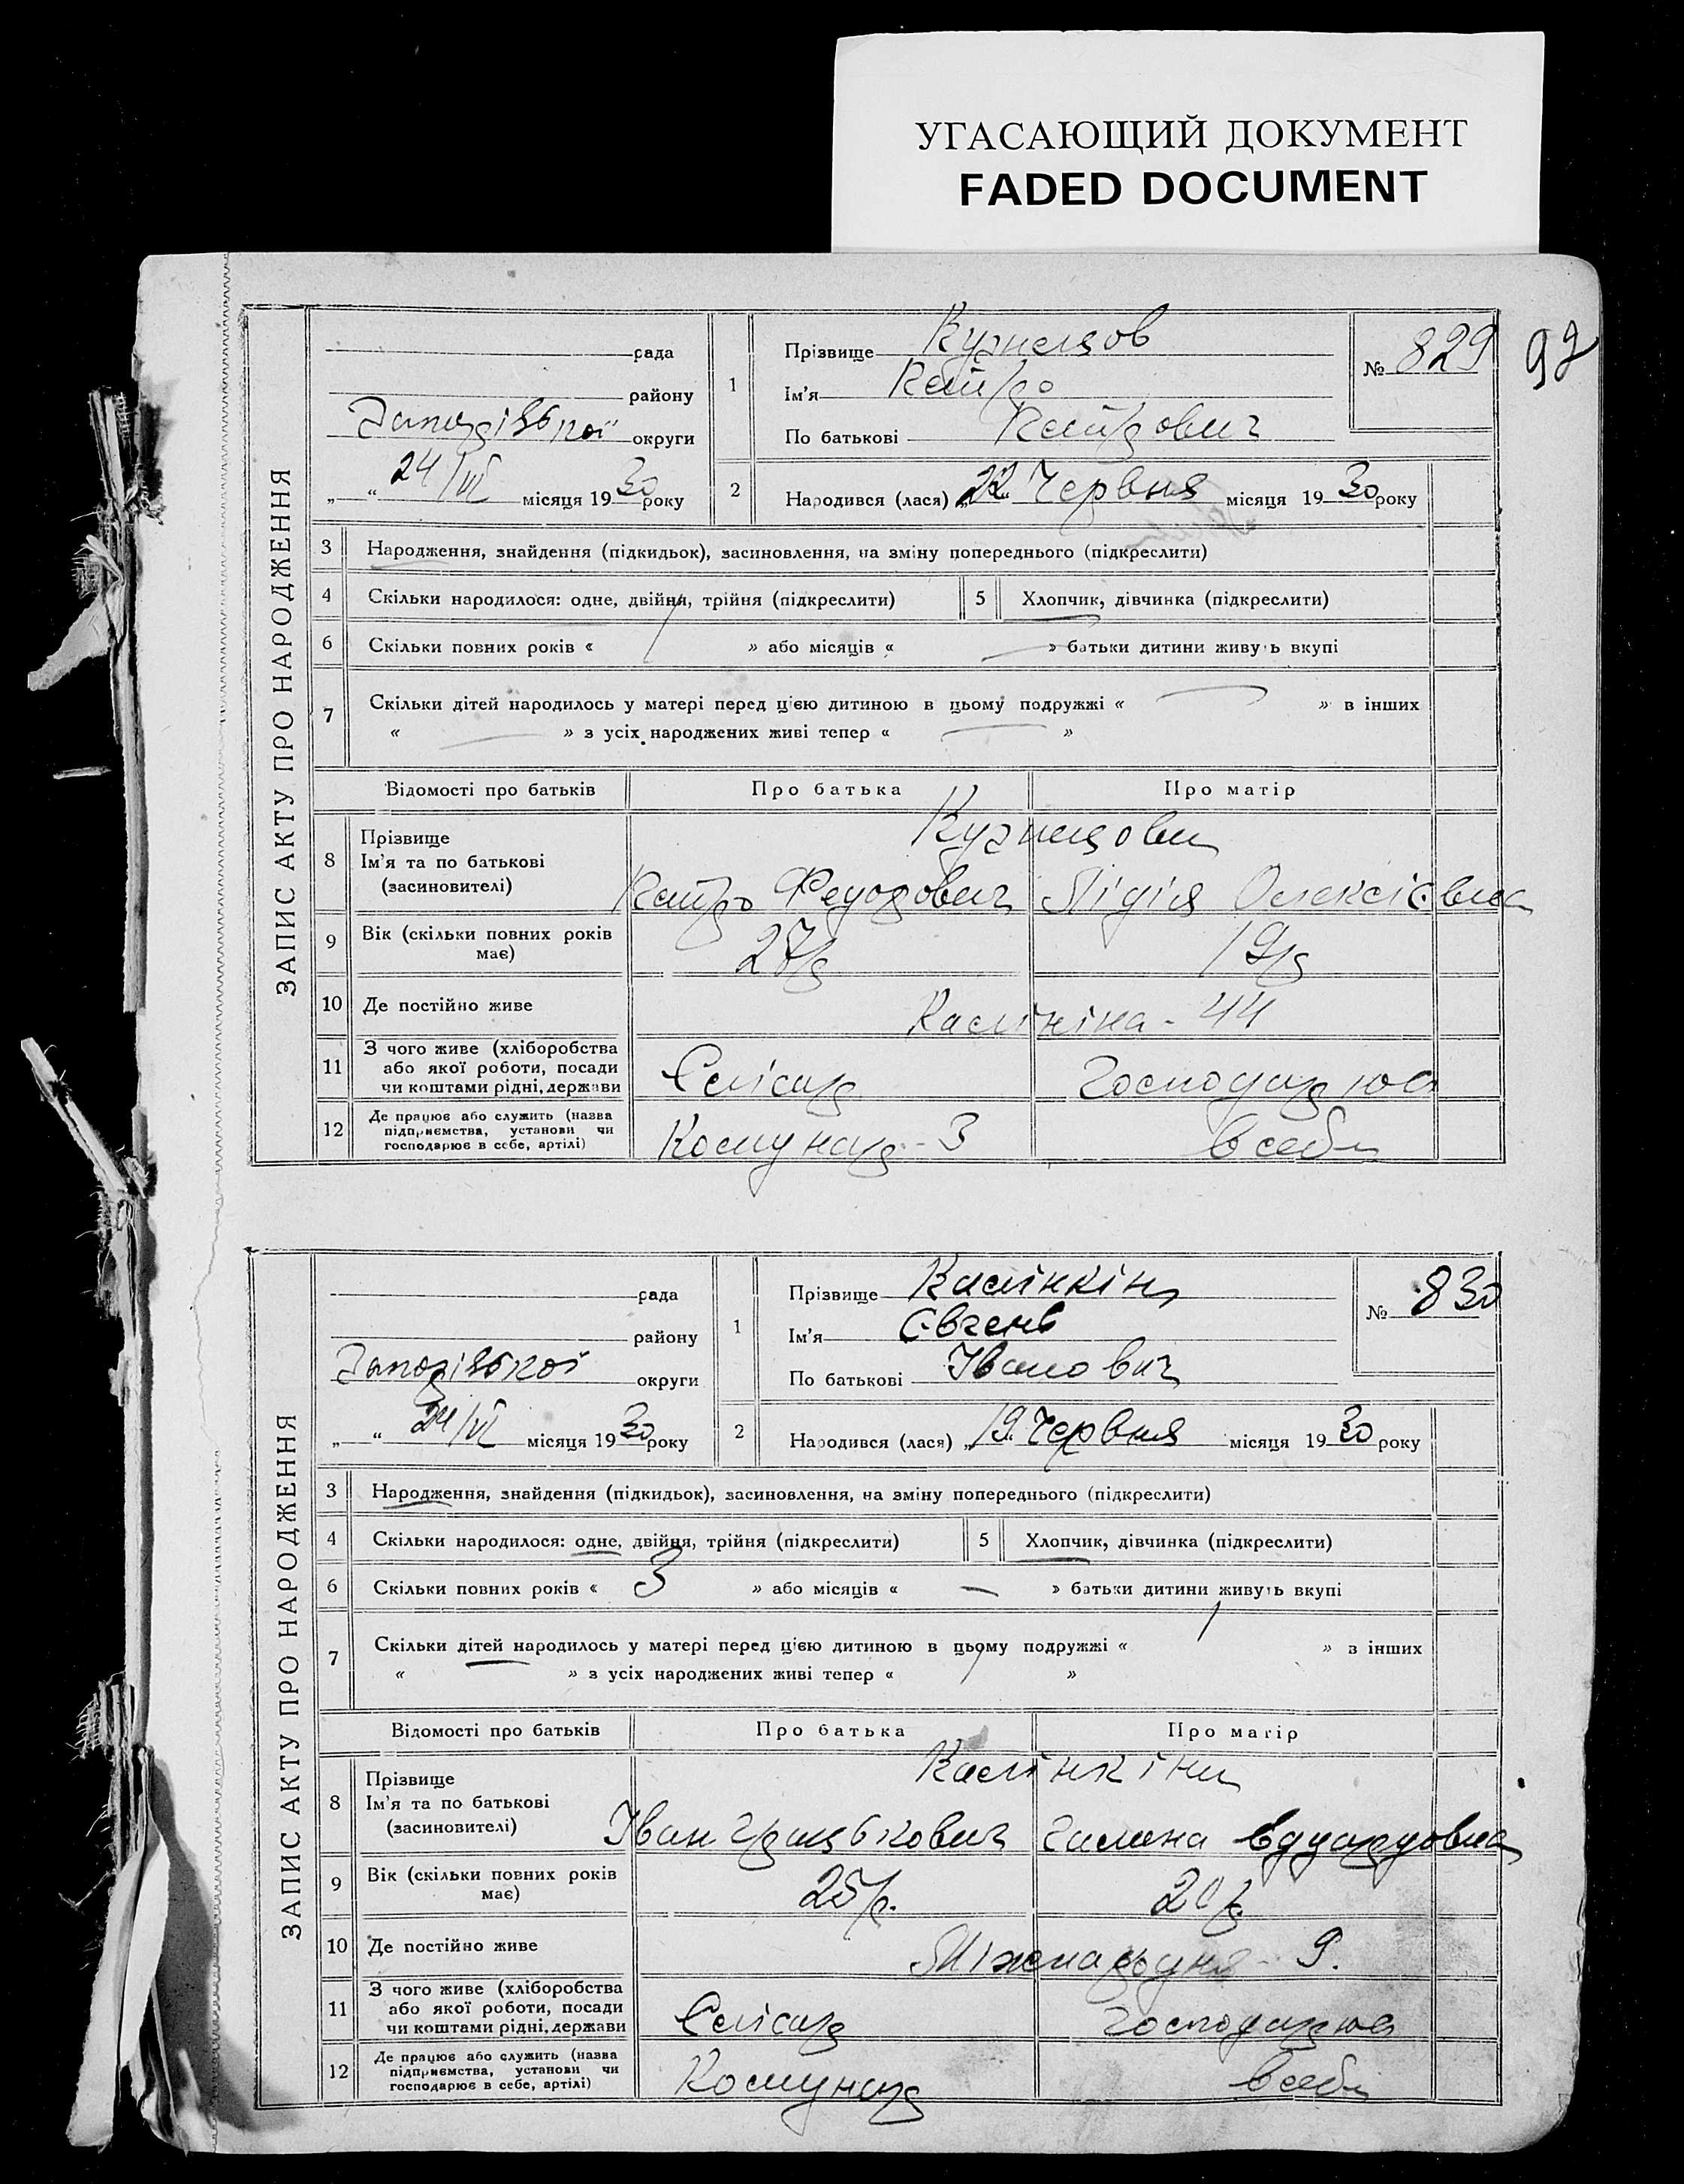 УГАСАЮЩИЙ ДОКУМЕНТ
FADED DOCUMENT
92
ЗАПИС АКТУ ПРО НАРОДЖЕННЯ
рада
району
Запорізької округи
„ “ 24/VI місяця 1930 року
1
Прізвище Кузнецов
Ім'я Петро
По батькові Петрович
№ 829
2
Народився (лася) „22“ Червня місяця 1930 року
3 Народження, знайдення (підкидьок), засиновлення, на зміну попереднього (підкреслити)
4 Скільки народилося: одне, двійня, трійня (підкреслити) 5 Хлопчик, дівчинка (підкреслити)
6 Скільки повних років « 1 » або місяців « — » батьки дитини живуть вкупі
7 Скільки дітей народилось у матері перед цією дитиною в цьому подружжі « — » в інших
« — » з усіх народжених живі тепер « — »
Відомості про батьків Про батька Про матір
8 Прізвище
Ім'я та по батькові
(засновителі)
Кузнецови
Петро Федорович Лідія Олексієвна
9 Вік (скільки повних років має) 27/р 19/р
10 Де постійно живе Калініна - 44
11 З чого живе (хліборобства
або якої роботи, посади
чи коштами рідні, держави
Слісар Господарює
12 Де працює або служить (назва
підприємства, установи чи
господарює в себе, артілі)
Комунар - 3 в себе
ЗАПИС АКТУ ПРО НАРОДЖЕННЯ
рада
району
Запорізької округи
„ “ 24/VI місяця 1930 року
1
Прізвище Калінкін
Ім'я Євгень
По батькові Іванович
№ 830
2
Народився (лася) „19“ Червня місяця 1930 року
3 Народження, знайдення (підкидьок), засиновлення, на зміну попереднього (підкреслити)
4 Скільки народилося: одне, двійня, трійня (підкреслити) 5 Хлопчик, дівчинка (підкреслити)
6 Скільки повних років « 3 » або місяців « — » батьки дитини живуть вкупі
7 Скільки дітей народилось у матері перед цією дитиною в цьому подружжі « 1 » з інших
« — » з усіх народжених живі тепер « 1 »
Відомості про батьків Про батька Про матір
8 Прізвище
Ім'я та по батькові
(засиновителі)
Калінкіни
Іван Галина Едуардовна
9 Вік (скільки повних років має) 25/р. 20/р.
10 Де постійно живе Міжнародня - 9.
11 З чого живе (хліборобства
або якої роботи, посади
чи коштами рідні, держави
Слісар Господарює
12 Де працює або служить (назва
підприємства, установи чи
господарює в себе, артілі)
Комунар в себе